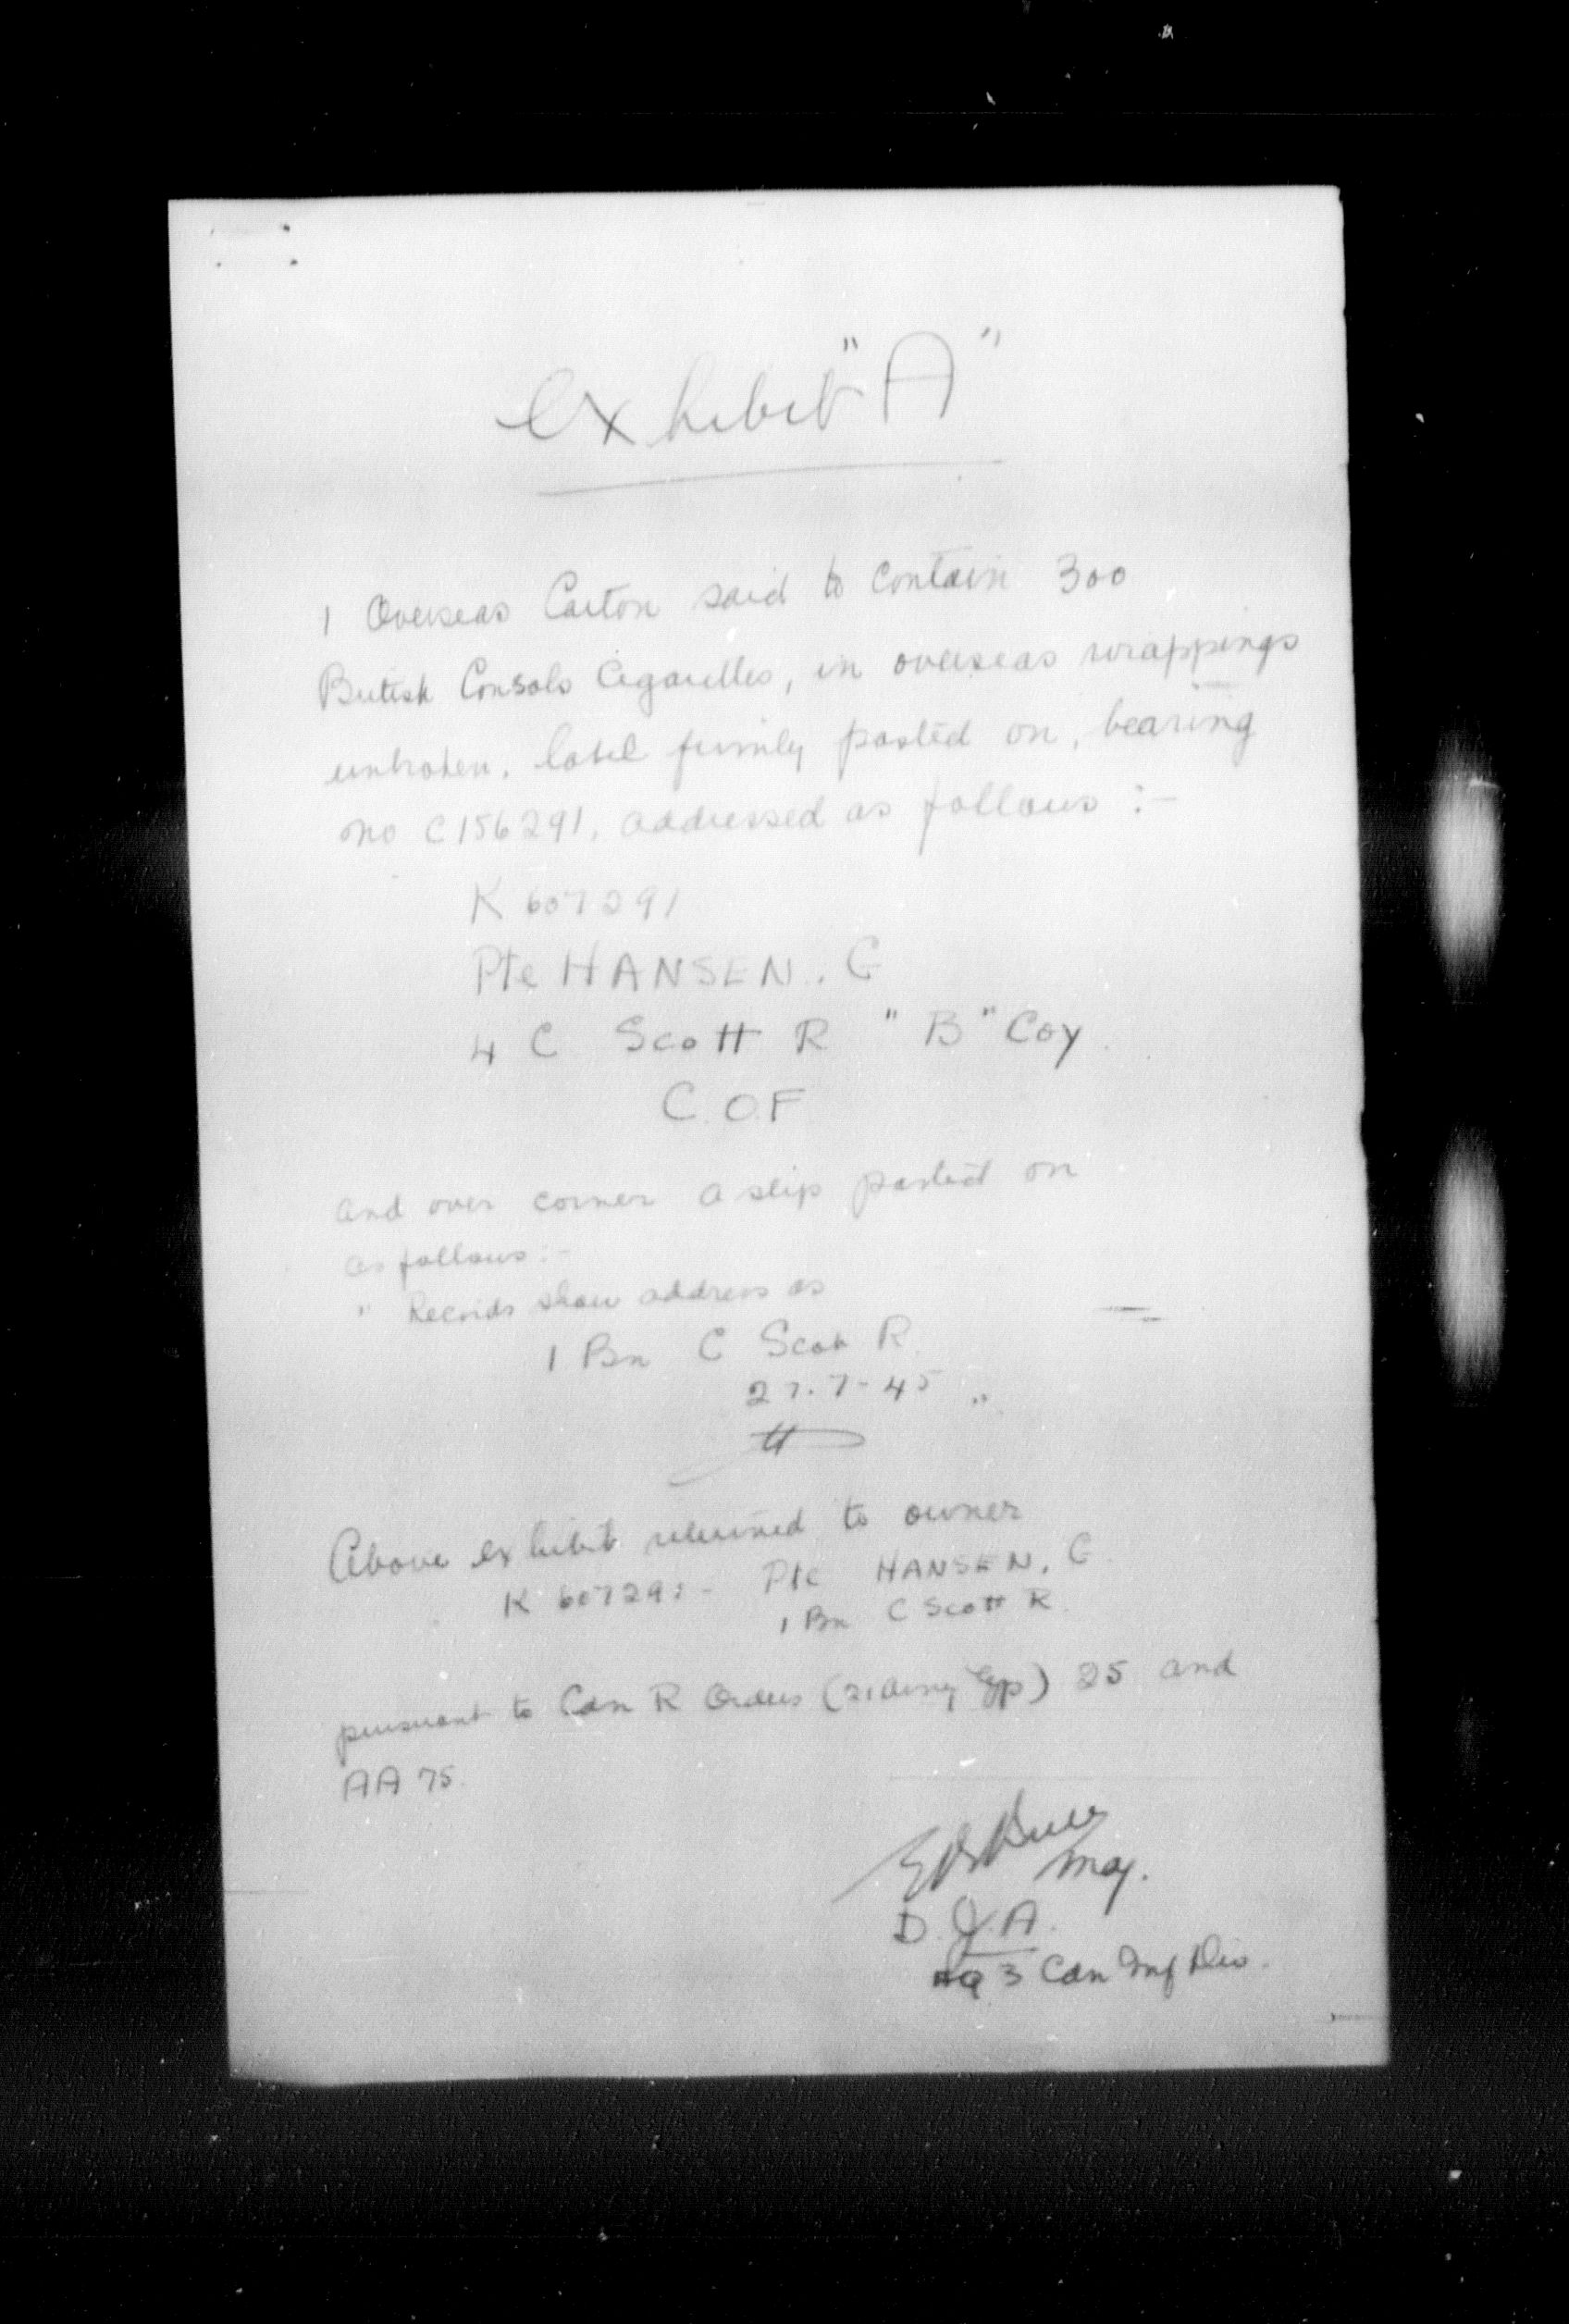 Exhibit "A"
1 Overseas Carton said to contain 300
British Consols Cigarettes, in overseas wrappings
unbroken, label firmly pasted on, bearing
no C156291, addressed as follows :-
K 607291
Pte HANSEN. G
4 C Scott R "B" Coy
C.O.F
and over corner a slip pasted on
as follows :-
" Records show address as
1 Bn C Scot R.
27-7-45 "
Above exhibit returned to owner
K 607291 - Pte HANSEN, G
1 Bn C Scott R.
pursuant to Can R Orders (21 Army Gp) 25 and
AA 75.
Maj.
D.J.A.
HQ 3 Can Inf Div.